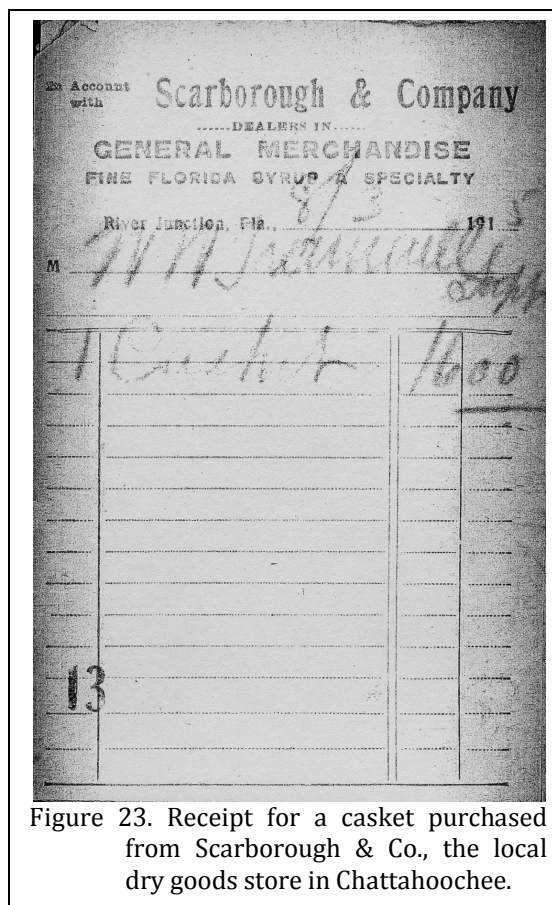 In Account
with
Scarborough & Company
......DEALERS IN......
GENERAL MERCHANDISE
FINE FLORIDA SYRUP A SPECIALTY
River Junction, Fla., 8/3 1915
M W W
1 Casket 1600
13
Figure 23. Receipt for a casket purchased
from Scarborough & Co., the local
dry goods store in Chattahoochee.